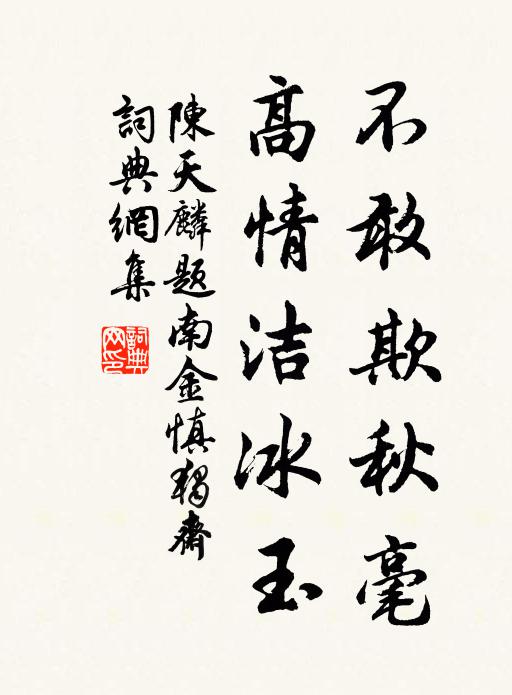 不敢欺秋毫
高情洁冰玉
陳天麟题南金慎獨齋
詞典網集
詞典网印